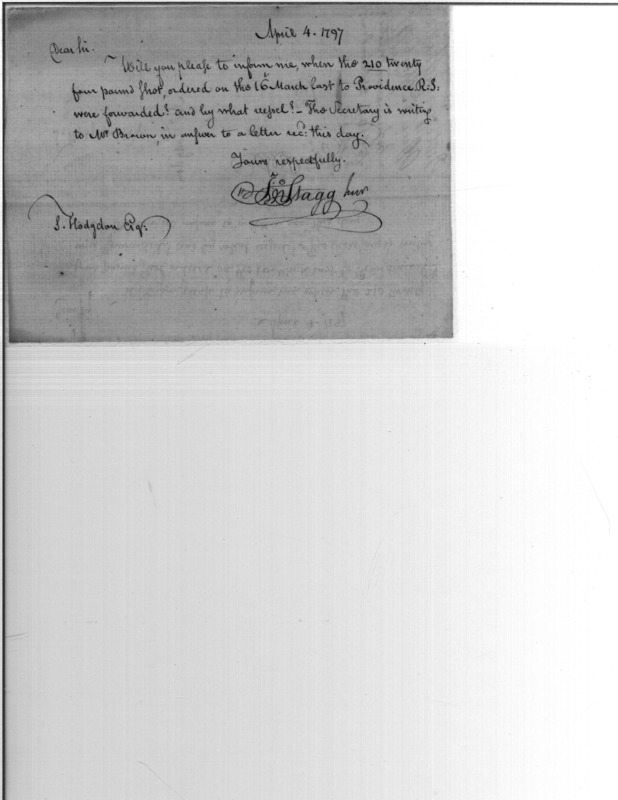 April 4. 1797
Dear Sir.
Will you please to inform me, when the 210 twenty
four pound shot, ordered on the 16th March last to Providence R.I:
were forwarded? and by what vessel? – The Secretary is writing
to Mr Brown, in answer to a letter recd: this day.
Yours respectfully.
Jno Stagg Junr
S. Hodgdon Esqr.